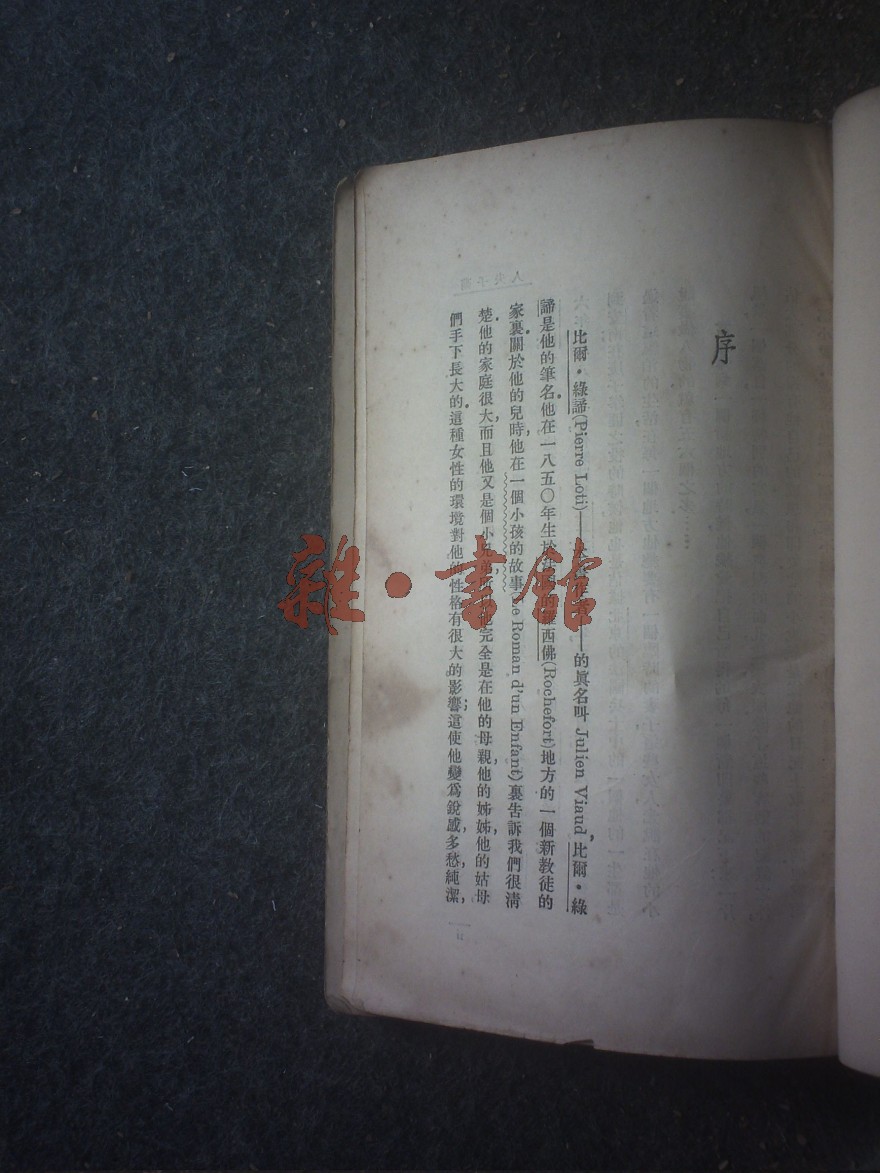 序
比爾·綠諦(Pierre Loti)—— ——的眞名叫 Julien Viaud, 比爾·綠
諦是他的筆名。他在一八五〇年生於 西佛(Rochefort)地方的一個新教徒的
家裏。關於他的兒時,他在一個小孩的故事(Le Roman d'un Enfant)裏告訴我們很清
楚。他的家庭很大,而且他又是個小兄弟,所 完全是在他的母親,他的姊姊,他的姑母
們手下長大的。這種女性的環境對他的性格有很大的影響;這使他變爲銳感,多愁,純潔,
雜·書館